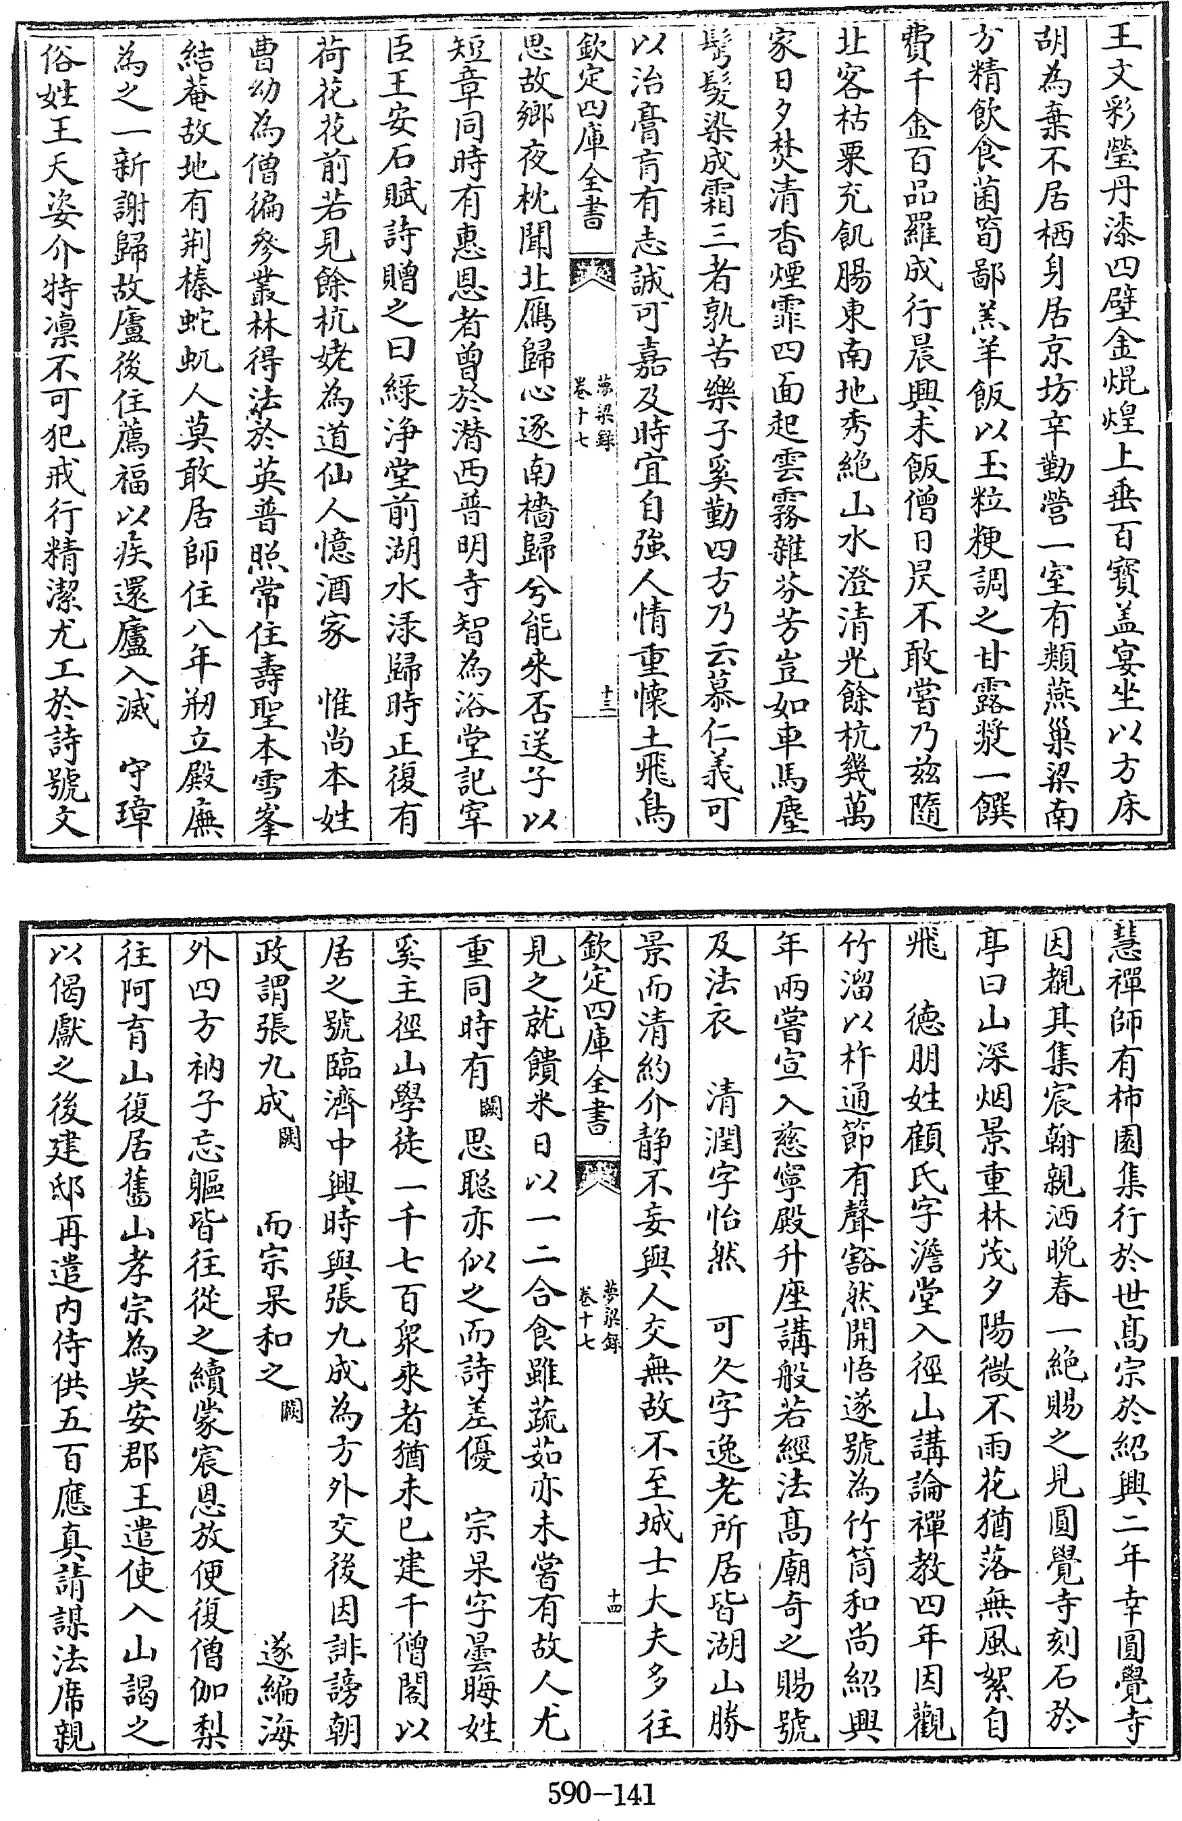 王文彩瑩丹漆四壁金焜煌上垂百寶蓋宴坐以方床
胡為棄不居栖身居京坊辛勤營一室有類燕巢梁南
方精飲食菌筍鄙羔羊飯以玉粒粳調之甘露漿一饌
費千金百品羅成行晨興未飯僧日昃不敢嘗乃兹隨
北客枯粟充飢腸東南地秀絶山水澄清光餘杭幾萬
家日夕焚清香煙霏四面起雲霧雜芬芳豈如車馬塵
鬢髮染成霜三者孰苦樂子奚勤四方乃云慕仁義可
以治膏肓有志誠可嘉及時宜自強人情重懷土飛鳥
欽定四庫全書
夢粱錄
卷十七
十三
思故鄉夜枕聞北鴈歸心逐南檣歸兮能來否送子以
短章同時有惠恩者曾於潜西普明寺智為浴堂記宰
臣王安石賦詩贈之曰緑浄堂前湖水渌歸時正復有
荷花花前若見餘杭姥為道仙人憶酒家　惟尚本姓
曹幼為僧徧參叢林得法於英普照常住壽聖本雪峯
結菴故地有荆榛蛇虺人莫敢居師住八年剏立殿廡
為之一新謝歸故廬後住薦福以疾還廬入滅　守璋
俗姓王天姿介特凛不可犯戒行精潔尤工於詩號文
慧禪師有柿園集行於世髙宗於紹興二年幸圓覺寺
因覩其集宸翰親洒晩春一絶賜之見圓覺寺刻石於
亭曰山深烟景重林茂夕陽微不雨花猶落無風絮自
飛　德朋姓顧氏字澹堂入徑山講論禪教四年因觀
竹溜以杵通節有聲豁然開悟遂號為竹筒和尚紹興
年兩嘗宣入慈寧殿升座講般若經法髙廟奇之賜號
及法衣　清潤字怡然　可久字逸老所居皆湖山勝
景而清約介静不妄與人交無故不至城士大夫多往
欽定四庫全書
夢粱錄
卷十七
十四
見之就饋米日以一二合食雖蔬茹亦未嘗有故人尤
重同時有闕思聰亦似之而詩差優　宗杲字曇晦姓
奚主徑山學徒一千七百衆來者猶未已建千僧閣以
居之號臨濟中興時與張九成為方外交後因誹謗朝
政謂張九成闕　而宗杲和之闕　遂編海
外四方衲子忘軀皆往從之續蒙宸恩放便復僧伽梨
往阿育山復居舊山孝宗為吳安郡王遣使入山謁之
以偈獻之後建邸再遣内侍供五百應真請謀法席親
590-141